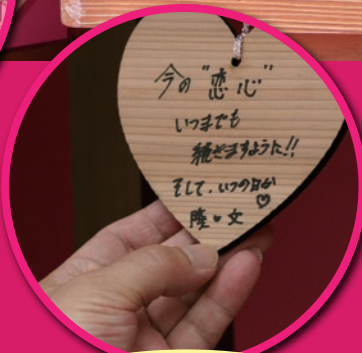 今の"恋心"
いつまでも
続きますように!!
そして、いつの日か♡
陸♥文